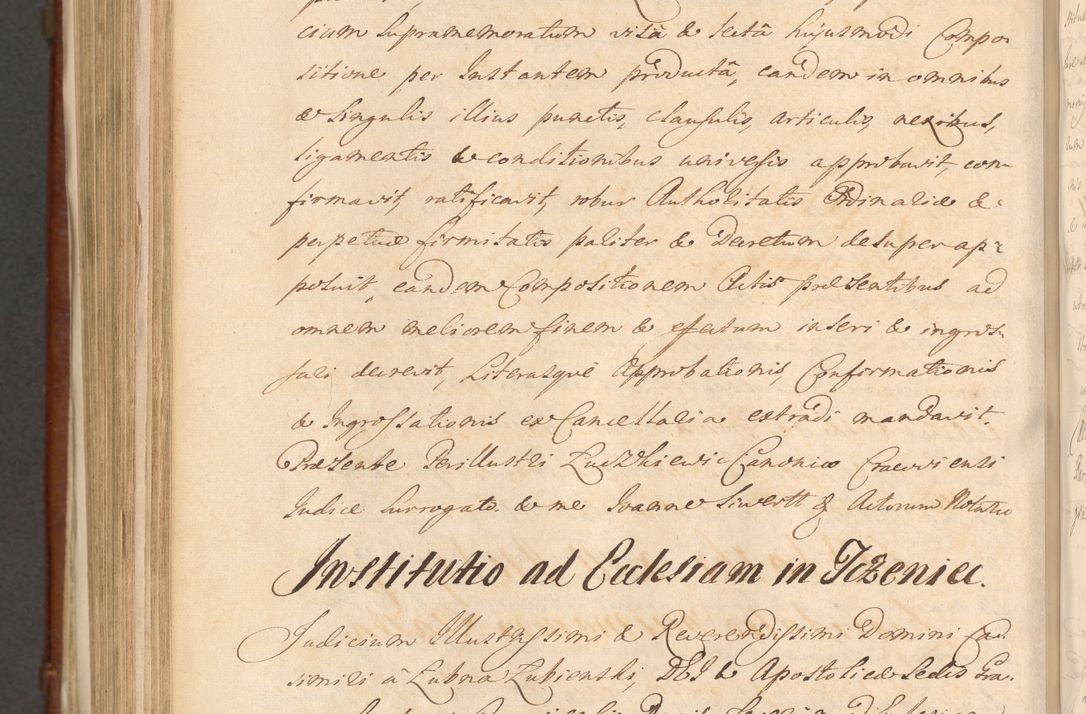 cium Supramemoratum visâ & lectâ hujusmodi Compo-
sitione per Instantem productâ, eandem in omnibus
& Singulis illius punctis, clausulis, articulis, nexibus,
ligamentis & conditionibus universis approbavit, con-
firmavit, ratificavit, robur Authoritatis Ordinariæ &
perpetuæ firmitatis pariter & Decretum desuper ap-
posuit, eandem Compositionem Actis præsentibus ad
omnem meliorem finem & effectum inseri & ingros-
sari decrevit, Literasque Approbationis, Confirmationis
& Ingrossationis ex Cancellaria extradi mandavit.
Præsente Perillustri Canonico Cracoviensi
Judice Surrogato & me Joanne Siwertt Actorum Notario
Institutio ad Ecclesiam in Tczeniec.
Judicium Illustrissimi & Reverendissimi Domini Ca-
simiri à Łubna Łubienski, DEI & Apostolicæ Sedis Gra-